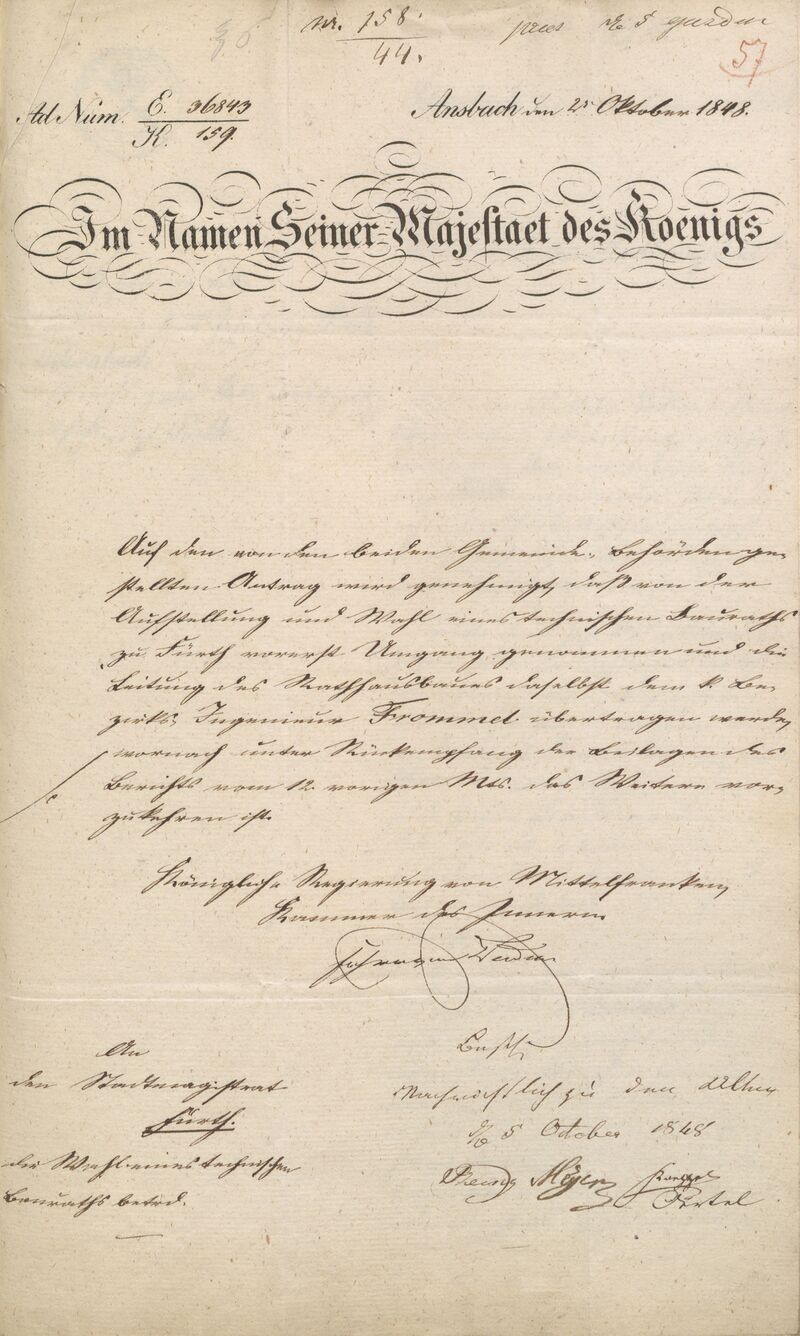 Nr. 158.
44.
57
Ad Num. E. 36843
K. 159.
Ansbach den 2t Oktober 1848.
Im Namen Seiner Majestaet des Koenigs
Auf den von den beiden Gemeinde-Behörden ge-
stellten Antrag wird genehmigt, daß von der
Aufstellung und Wahl eines technischen Bauraths
zu Fürth vorerst Umgang genommen und die
Leitung des Rathhausbaues daselbst dem k. Be-
zirks-Ingenieur Frommel übertragen werde,
wornach unter Rückempfang der Beilagen des
Berichts vom 12. vorigen Mts. das Weitere vor-
zukehren ist.
Königliche Regierung von Mittelfranken,
Kammer des Innern.
An
den Stadtmagistrat
Fürth.
die Wahl eines technischen
Bauraths betrd.
Beschl.
Nachrichtlich zu den Akten
5 October 1848